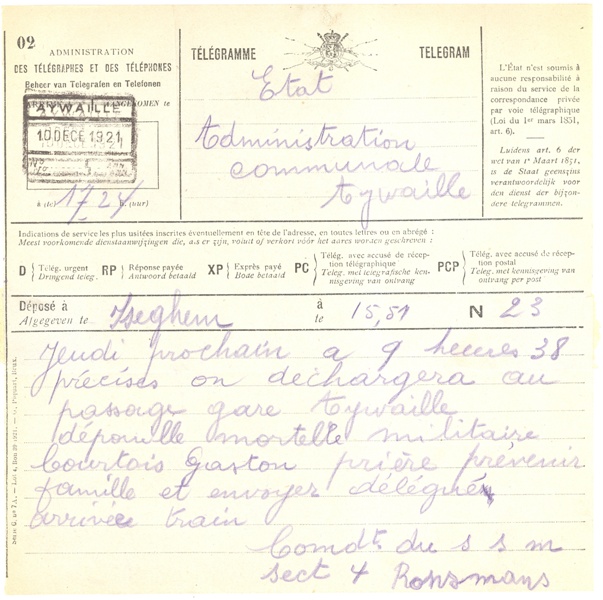 02
ADMINISTRATION
DES TÉLÉGRAPHES ET DES TÉLÉPHONES
Beheer van Telegrafen en Telefonen
AYWAILLE
10 DECE 1921
à (te) 17.24 h. (uur)
TÉLÉGRAMME
TELEGRAM
Etat
Administration
communale
Aywaille
L'État n'est soumis à
aucune responsabilité à
raison du service de la
correspondance privée
par voie télégraphique
(Loi du 1er mars 1851,
art. 6).
Luidens art. 6 der
wet van 1e Maart 1851,
is de Staat geenszins
verantwoordelijk voor
den dienst der bijzon-
dere telegrammen.
Indications de service les plus usitées inscrites éventuellement en tête de l'adresse, en toutes lettres ou en abrégé :
Meest voorkomende dienstaanwijzingen die, als er zijn, voluit of verkort vóór het adres worden geschreven :
D ) Télég. urgent Dringend teleg.
RP ) Réponse payée Antwoord betaald
XP ) Exprès payé Bode betaald
PC ) Télég. avec accusé de réception télégraphique Teleg. met telegrafische kennisgeving van ontvangst
PCP ) Télég. avec accusé de réception postal Teleg. met kennisgeving van ontvangst per post
Déposé à Afgegeven te Iseghem à te 15,51 N 23
Jeudi prochain a 9 heures 38
précises on dechargera au
passage gare Aywaille
dépouille mortelle militaire
Courtois Gaston prière prévenir
famille et envoyer délégué
arrivée train
Comdt du s s m
sect 4 Ronsmans